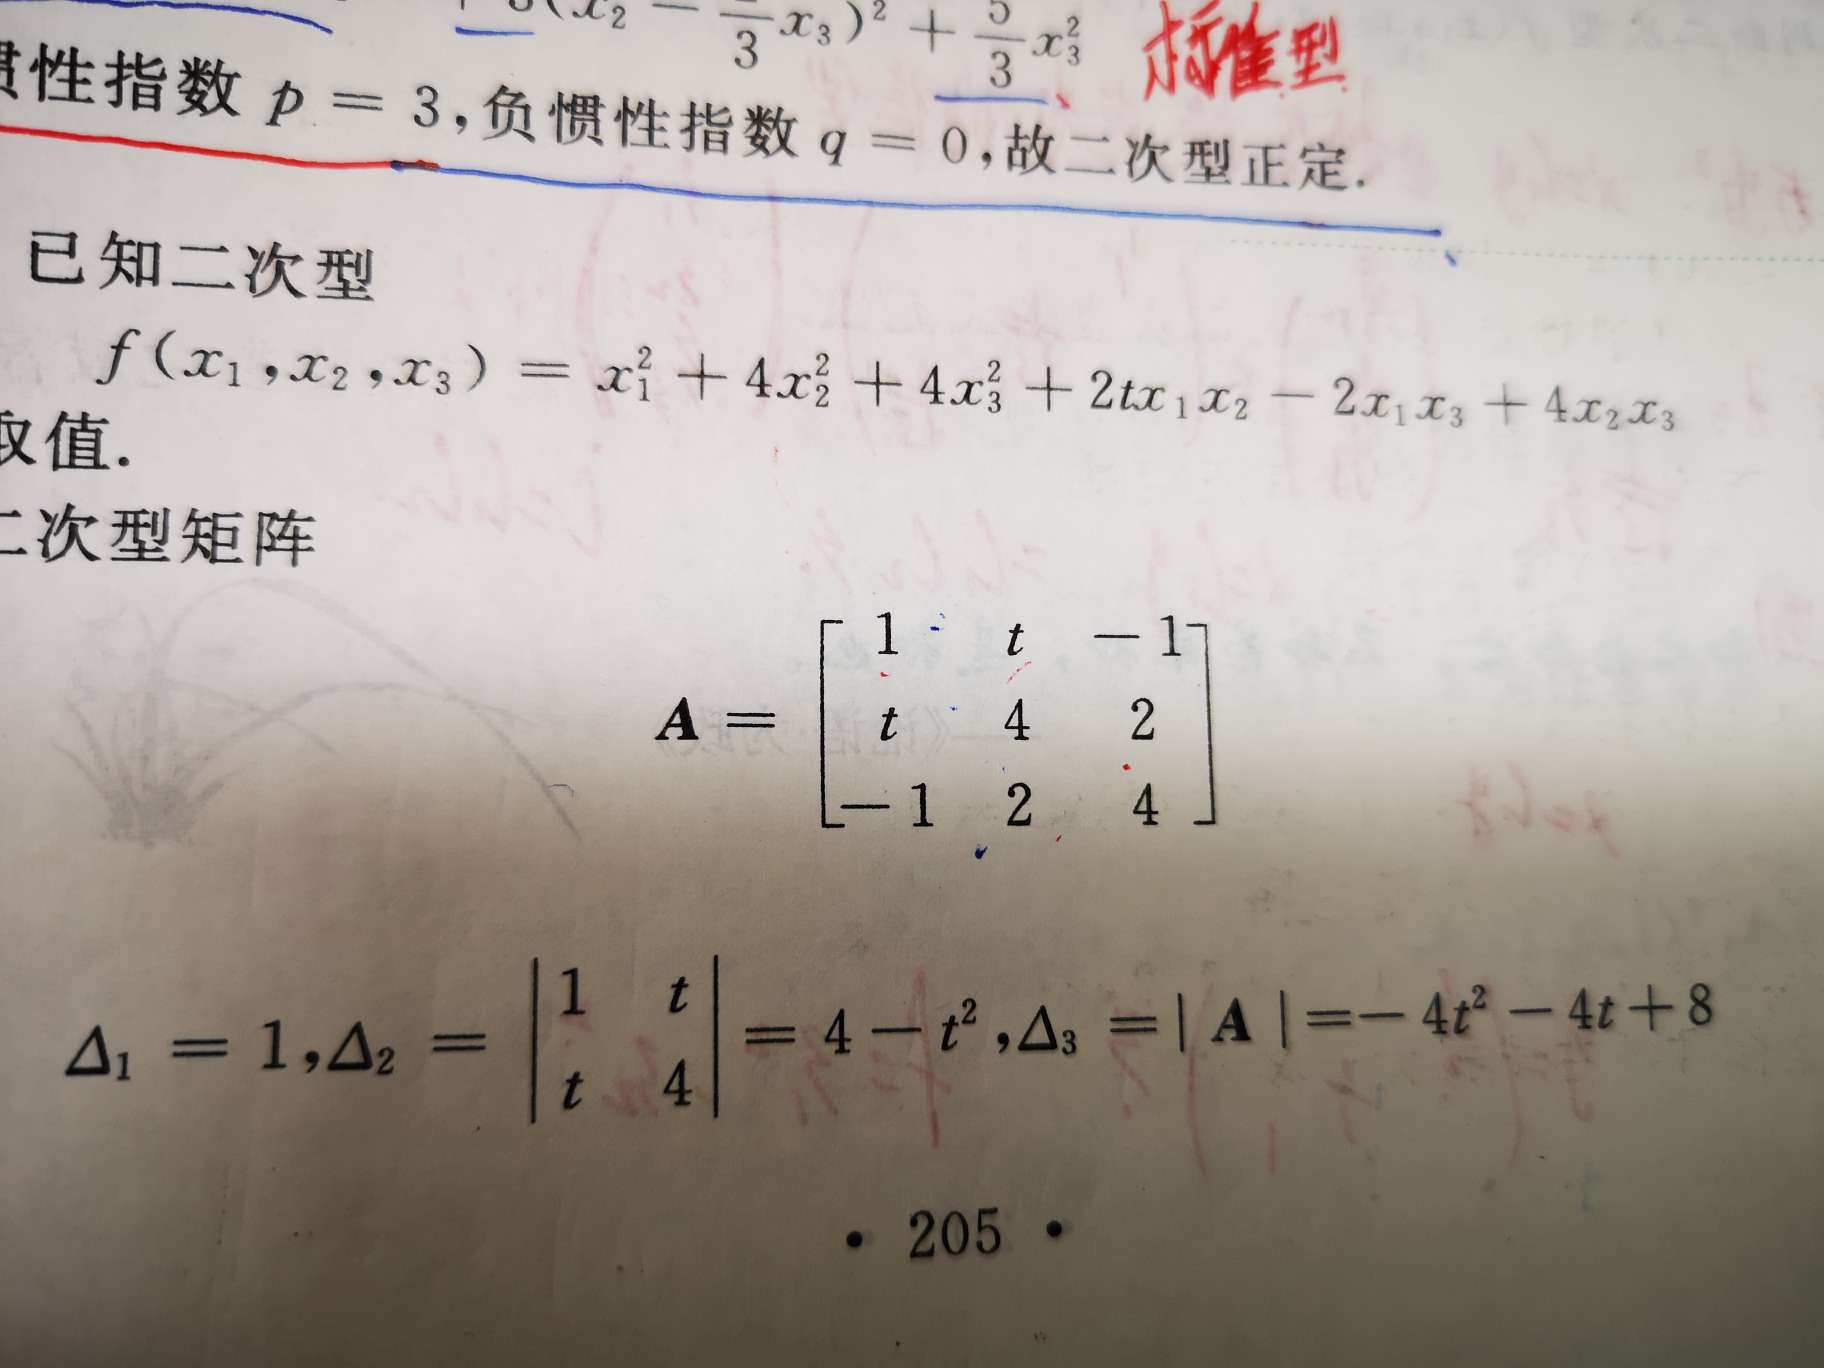 (x₂ − —/3 x₃)² + 5/3 x₃² 标准型
惯性指数 p = 3,负惯性指数 q = 0,故二次型正定.
已知二次型
f(x₁,x₂,x₃) = x₁² + 4x₂² + 4x₃² + 2tx₁x₂ − 2x₁x₃ + 4x₂x₃
取值.
二次型矩阵
1 t −1
A = t 4 2
−1 2 4
Δ₁ = 1,Δ₂ = |1 t; t 4| = 4 − t²,Δ₃ = | A | = − 4t² − 4t + 8
· 205 ·